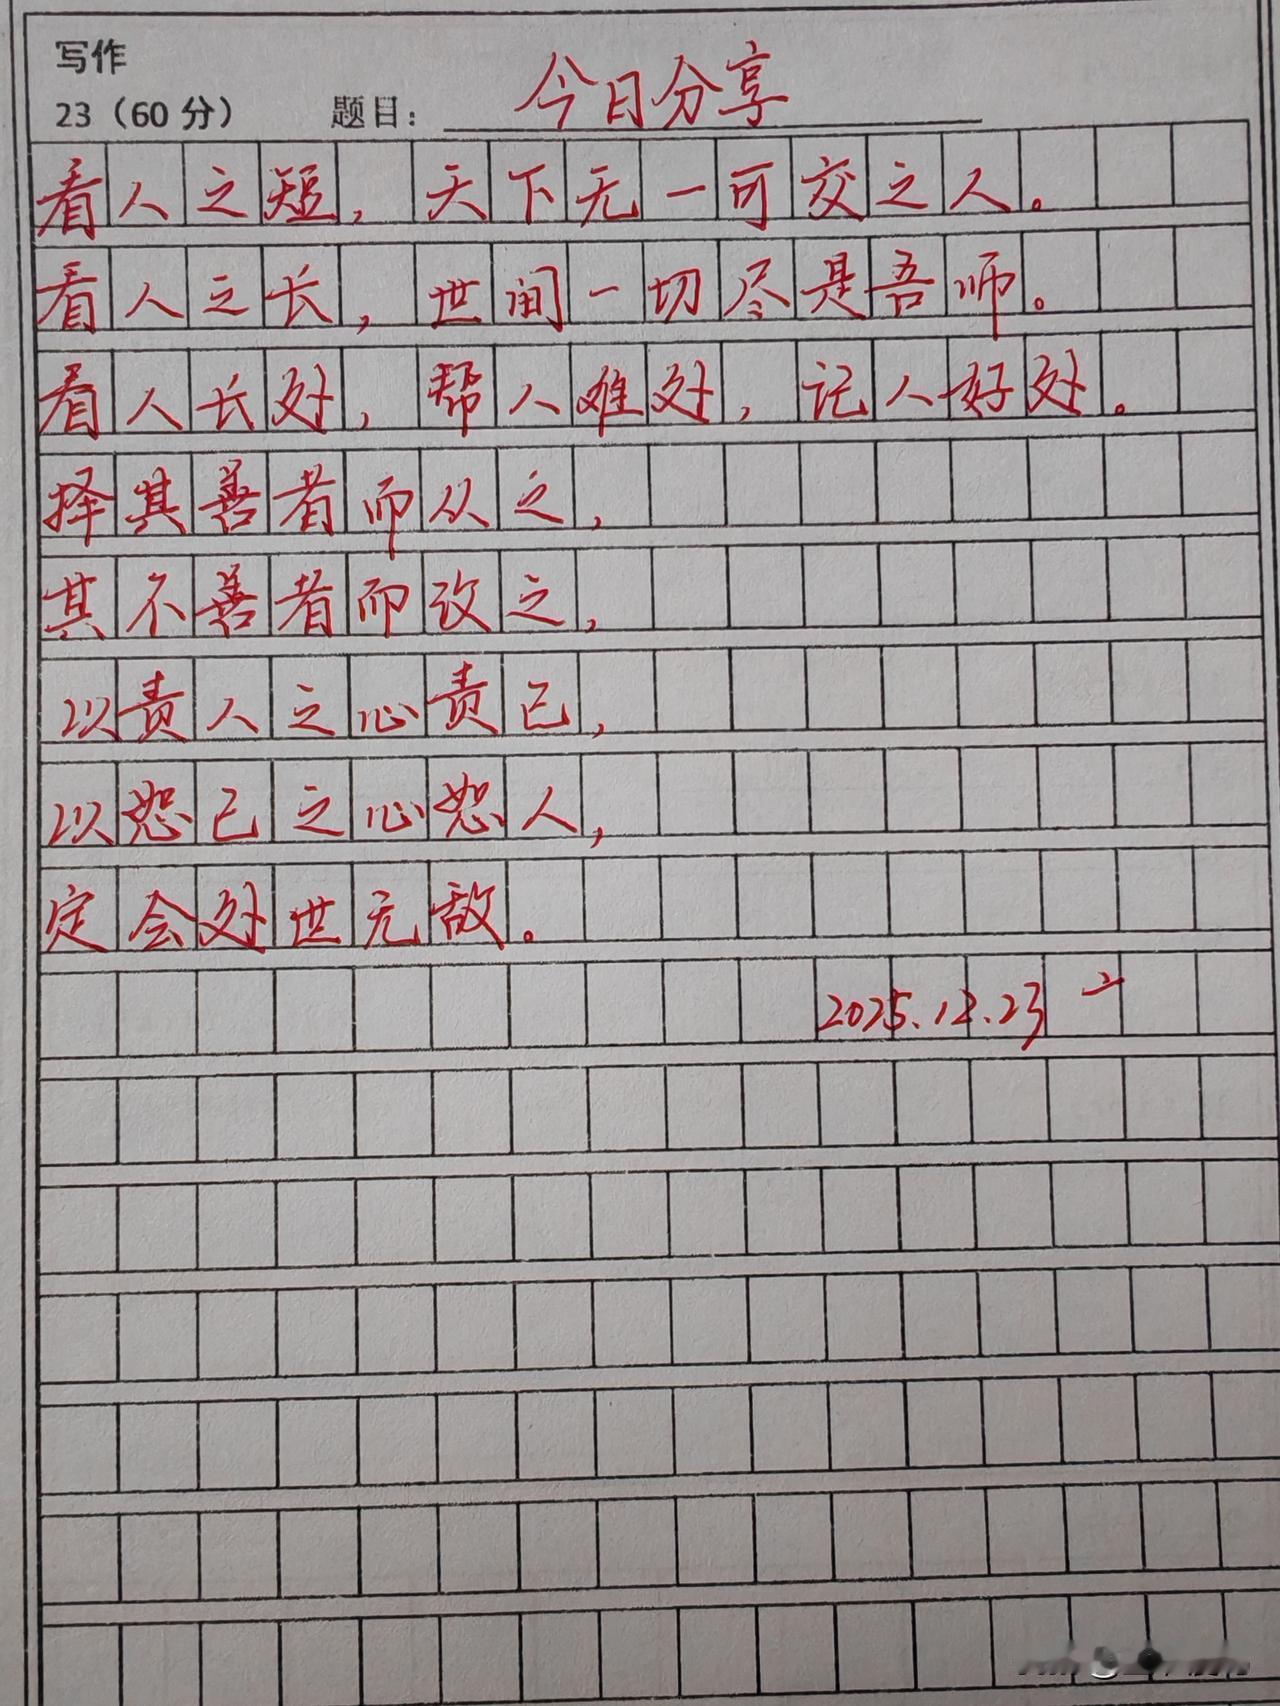 写作
23（60分） 题目：今日分享
看人之短，天下无一可交之人。
看人之长，世间一切尽是吾师。
看人长处，帮人难处，记人好处。
择其善者而从之，
其不善者而改之，
以责人之心责己，
以恕己之心恕人，
定会处世无敌。
2025.12.23 二